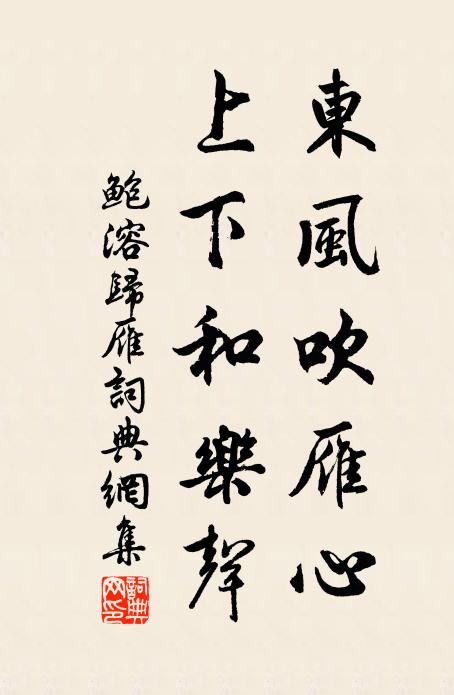 東風吹雁心
上下和樂聲
鲍溶歸雁詞典網集
詞典网印